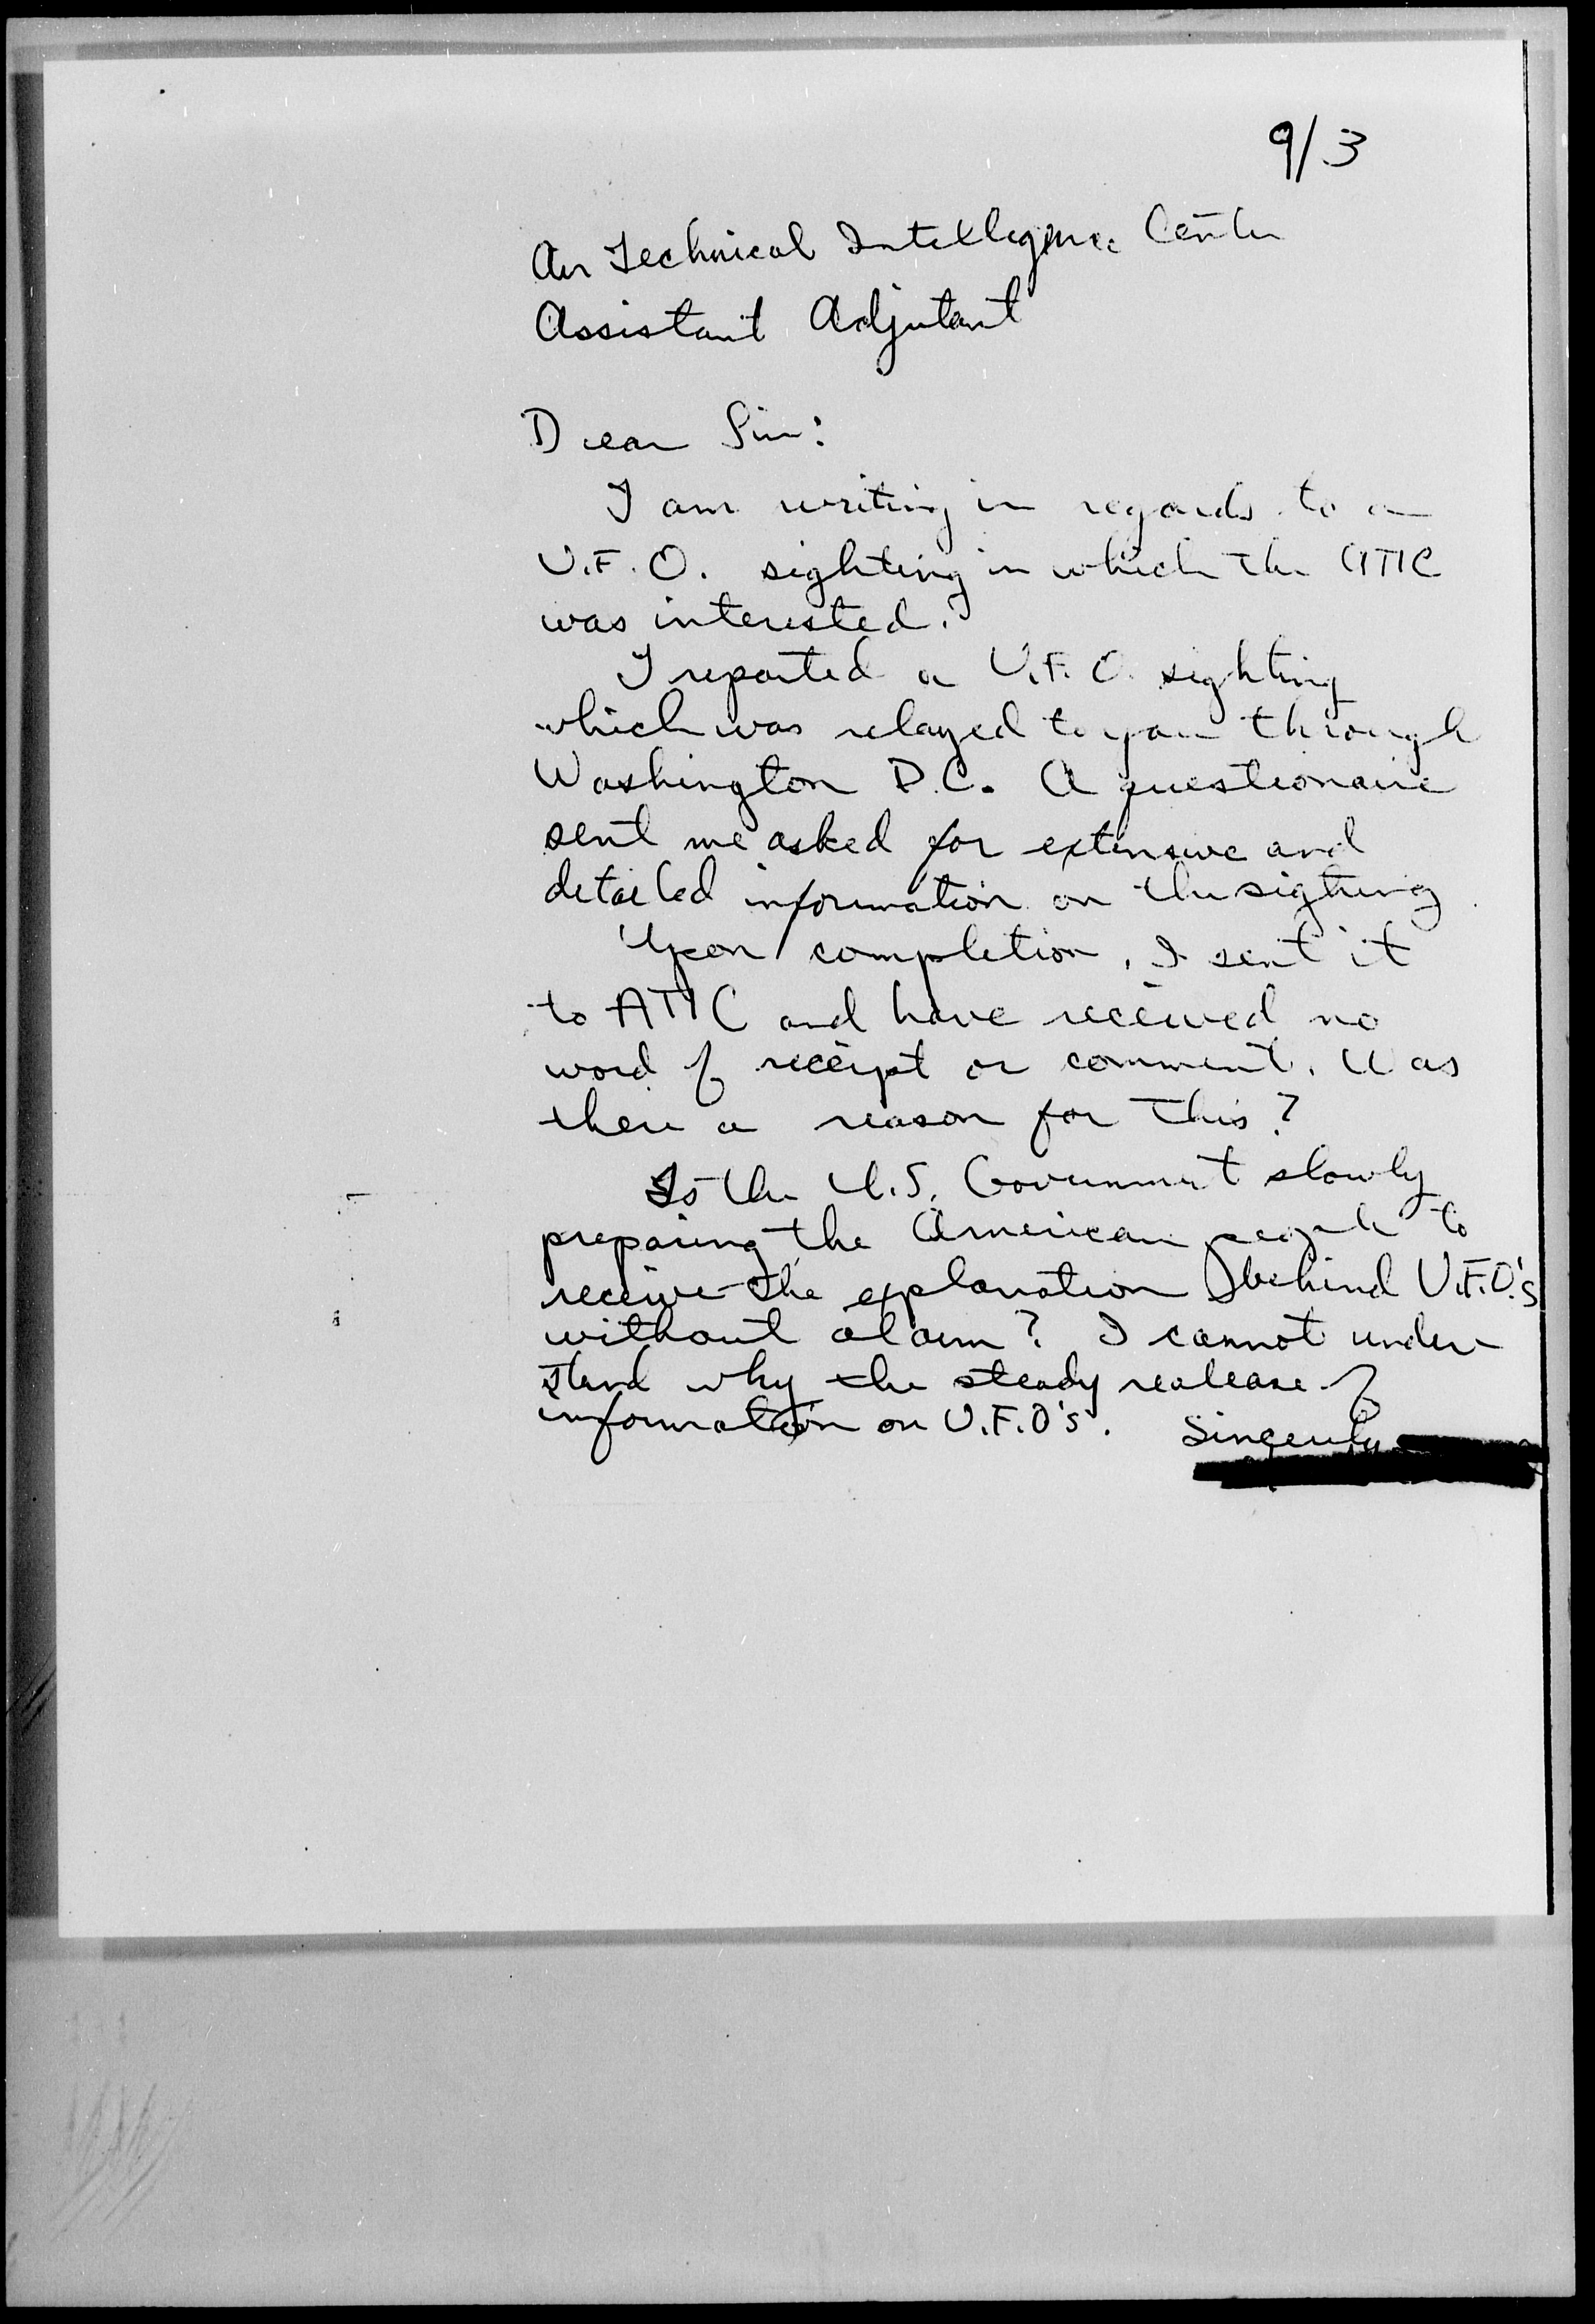 9/3
Air Technical Intelligence Center
Assistant Adjutant
Dear Sir:
I am writing in regards to a
U.F.O. sighting in which the ATIC
was interested.
I reported a U.F.O. sighting
which was relayed to you through
Washington D.C. A questionaire
sent me asked for extensive and
detailed information on the sighting.
Upon completion, I sent it
to ATIC and have received no
word of receipt or comment. Was
there a reason for this?
Is the U.S. Government slowly
preparing the American people to
receive the explanation behind U.F.O.'s
without alarm? I cannot under-
stand why the steady realease of
information on U.F.O's. Sincerely